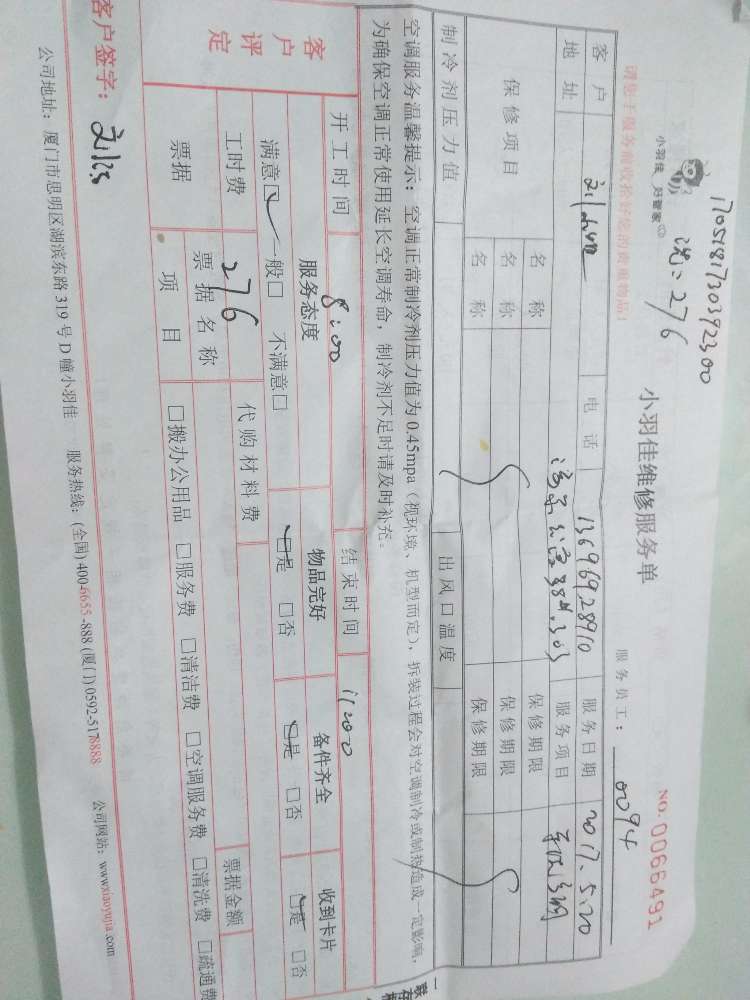 1705181730392300
洗：276
小羽佳 好管家
小羽佳维修服务单
NO. 0066491
请您于服务前收拾好您的贵重物品！
服务员工： 0094
客户 电话 13696928910 服务日期 2017.5.20
地址 服务项目
保修项目 名称 保修期限
名称 保修期限
名称 保修期限
制冷剂压力值 出风口温度
空调服务温馨提示：空调正常制冷剂压力值为0.45mpa（视环境、机型而定），拆装过程会对空调制冷或制热造成一定影响，
为确保空调正常使用延长空调寿命，制冷剂不足时请及时补充。
开工时间 8:00 结束时间 11:00
客户评定 服务态度 物品完好 备件齐全 收到卡片
满意□ 一般□ 不满意□ □是 □否 □是 □否 □是 □否
工时费 276 代购材料费
票据 票据名称 票据金额
项目 □搬办公用品 □服务费 □清洁费 □空调服务费 □清洗费 □疏通费
客户签字：
公司地址：厦门市思明区湖滨东路319号D幢小羽佳 服务热线：(全国)400-6655-888 (厦门)0592-5178888 公司网站：www.xiaoyujia.com